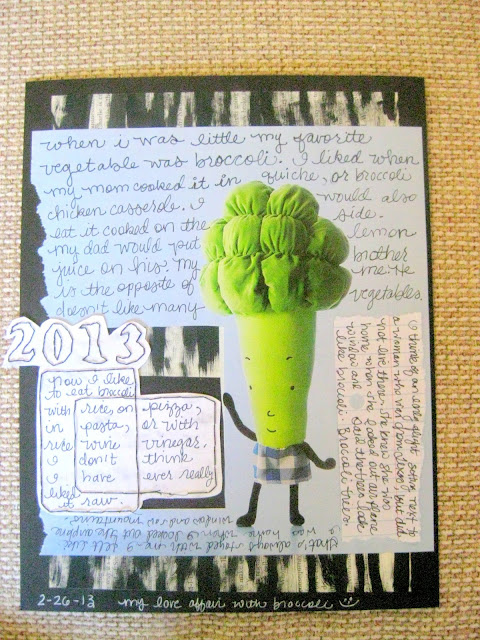 when i was little my favorite
vegetable was broccoli. I liked when
my mom cooked it in quiche, or broccoli
chicken casserole. I would also
eat it cooked on the side.
my dad would put lemon
juice on his. My brother
is the opposite of me. He
doesn't like many vegetables.
2013
now I like
to eat broccoli
with rice, on pizza,
in pasta, or with
rice wine vinegar.
I don't think
I have ever really
liked it raw.
I think of an early flight sitting next to
a woman who was from but did
not live there. She knew she was
home when she looked out airplane
window and said the trees look
like broccoli. Broccoli trees.
that's always stayed with me. I felt like
i was home when I looked out the airplane
window and saw mountains.
2-26-13 my love affair with broccoli